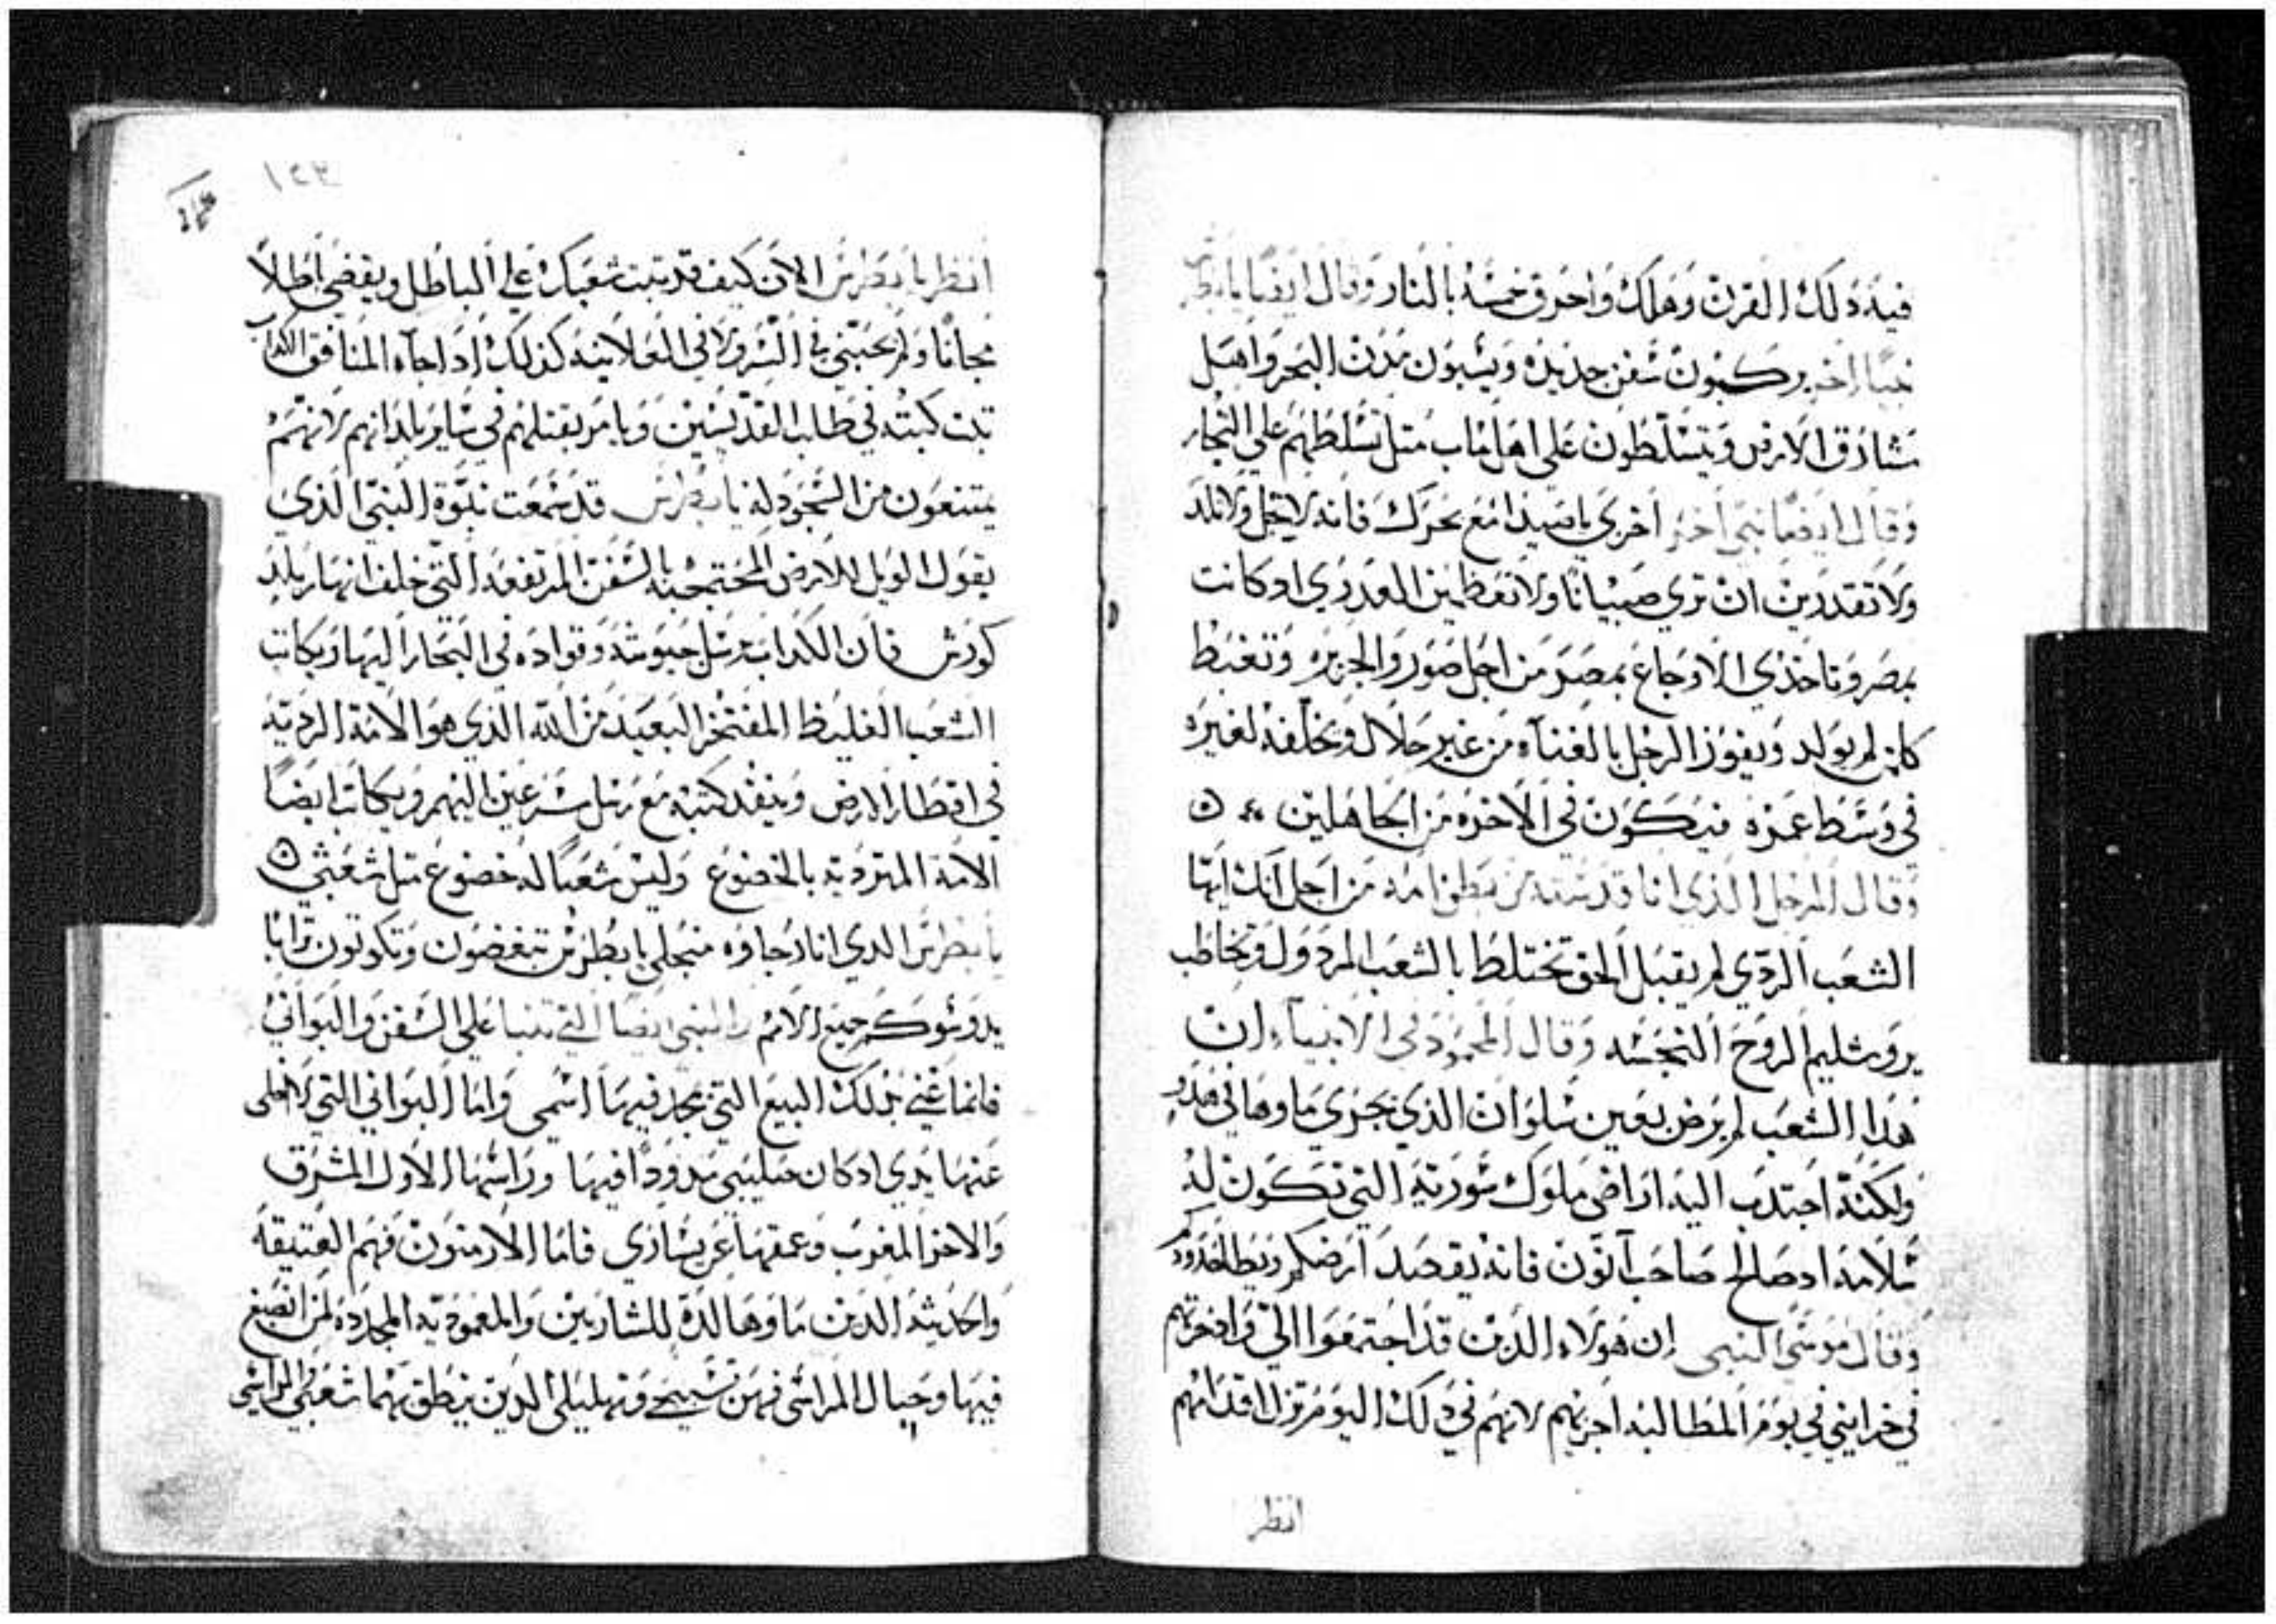 فيه ذلك القرن وهلك واحرق خمسه بالنار وقال ايضًا يا بطرس
نبيًا اخر يركبون سفن جديده ويسبون مدن البحر واهل
مشارق الارض ويتسلطون على اهل ماب متل تسلطهم على التجار
وقال ايضًا نبي اخر اخزي يا صيدا مع بحرك فانه لا تحبل ولا تلد
ولا تقدرين ان تري صبيانًا ولا تعظمين العدري اد كانت
بمصر وتاخذي الاوجاع بمصر من اجل صور والجزيره وتغبط
كانن لم يولد ويفوز الرجل بالغناء من غير حلال ويخلفه لغيره
في وسط عمره فيكون في الاخره من الجاهلين
وقال الرجل الذي انا قدسته من بطن امه من اجل انك ايها
الشعب الردي لم يقبل الحق تختلط بالشعب المردول وتخاطب
يروشليم الروح النجسه وقال المحمود في الانبياء ان
هذا الشعب لم يرض بعين سلوان الذي يجري ماوها في هدو
ولكنه اجتدب اليه اراضي ملوك سورية التي تكون له
سلامه اد صالح صاحب آتون فانه يقصد ارضكم ويطا حدودكم
وقال موسى النبي ان هولاء الدين قد اجتمعوا الي وادخرتهم
في خزايني في يوم المطالبه اجزيهم لانهم في ذلك اليوم تزل اقدامهم
انظر
١٢٣
انظر يا بطرس الان كيف قد تبت شعبك على الباطل ويقضي باطلاً
مجانًا ولم يحبني في السر ولا في العلانيه كذلك اذا جآه المنافق الكداب
تبت كتبه في طلب القديسين ويامر بقتلهم في ساير بلدانهم لانهم
يمتنعون من السجود له يا بطرس قد سمعت نبوة النبي الذي
يقول الويل للارض المحتجبه بالسفن المرتفعه التي خلف انهار بلد
كورش فان الكداب يرسل جيوشه وقواده في البحار اليها ويكاتب
الشعب الغليظ المفتخر البعيد من الله الذي هو الامة الرديه
في اقطار الارض وينفد كتبه مع رسل مسرعين اليهم ويكاتب ايضًا
الامة المتردية بالخضوع وليس شعبًا له خضوع متل شعبي
يا بطرس الدي انا رجاوه منجلي يا بطرس تبغضون وتكونون ترابًا
يدوسوكم جميع الامم والنبي ايضًا التي تنبا على السفن والبواني
فانما عني بذلك البيع التي يمجد فيها اسمي واما البواني التي لا اخلي
عنها يدي اد كان صليبي مدودًا فيها وراسها الاول المشرق
والاخر المغرب وعمقها عن يساري فاما الارمنون فهم العتيقه
والحديثه الدين ماوها لدة للشاربين والمعموديه المجدده لمن انصبغ
فيها وجبال المراسي فهن تسبيحي وتهليلي الدين ينطق بهما شعبي المراسي